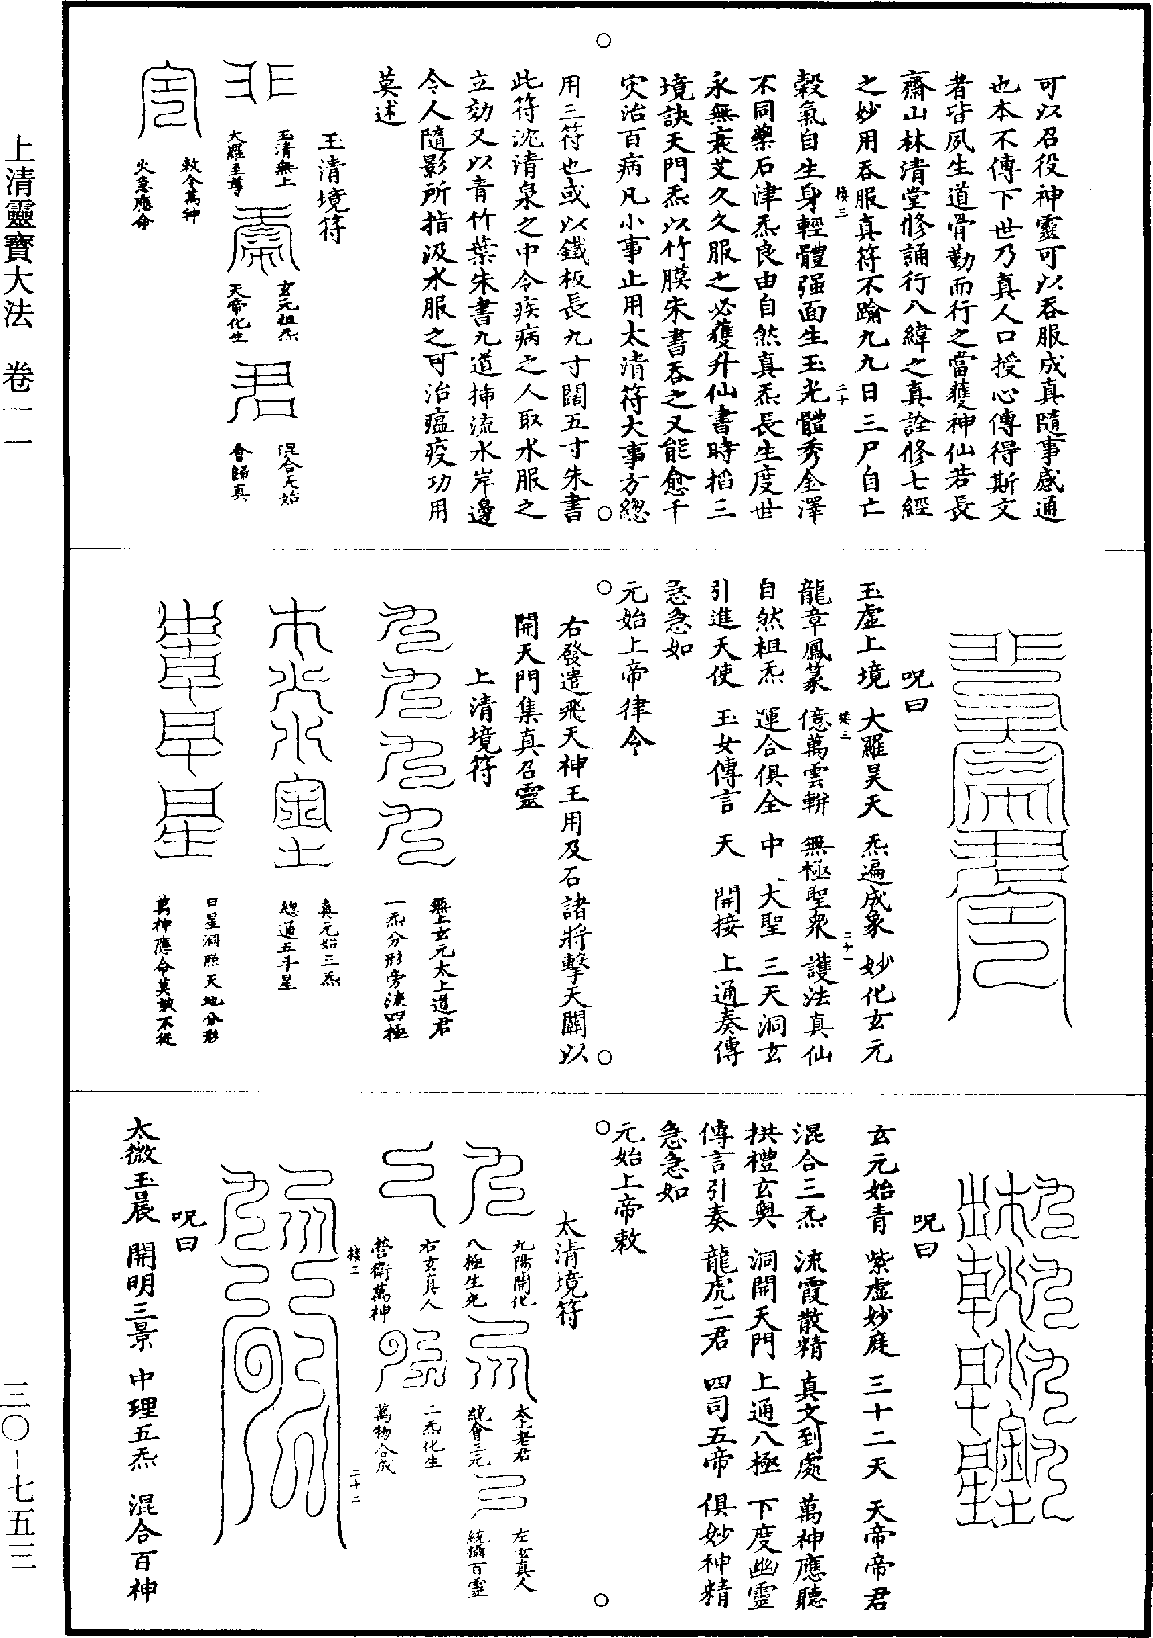 上清靈寶大法　卷一一
三〇－七五三
可以召役神靈可以吞服成真隨事感通
也本不傳下世乃真人口授心傳得斯文
者皆夙生道骨勤而行之當獲神仙若長
齋山林清堂修誦行八緯之真詮修七經
之妙用吞服真符不踰九九日三尸自亡
穀氣自生身輕體强面生玉光體秀金澤
不同藥石津炁良由自然真炁長生度世
永無衰艾久久服之必獲升仙書時掐三
境訣天門炁以竹膜朱書吞之又能愈千
灾治百病凡小事止用太清符大事方總
用三符也或以鐵板長九寸闊五寸朱書
此符沈清泉之中令疾病之人取水服之
立効又以青竹葉朱書九道揷流水岸邊
令人隨影所指汲水服之可治瘟疫功用
莫述
玉清境符
玉清無上
大羅至尊
玄元祖炁
天帝化生
混合元始
會歸真
敕令萬神
火急應命
呪曰
玉虛上境　大羅昊天　炁遍成象　妙化玄元
龍章鳳篆　億萬雲軿　無極聖衆　護法真仙
自然祖炁　運合俱全　中、大聖　三天洞玄
引進天使　玉女傳言　天　開接　上通奏傳
急急如
元始上帝律令
右發遣飛天神王用及石諸將擊天關以
開天門集真召靈
上清境符
無上玄元太上道君
一炁分形旁達四極
真元始三炁
總通五斗星
日星洞照天地分形
萬神應命莫敢不從
呪曰
玄元始青　紫虛妙庭　三十二天　天帝帝君
混合三炁　流霞散精　真文到處　萬神應聽
拱禮玄輿　洞開天門　上通八極　下度幽靈
傳言引奏　龍虎二君　四司五帝　俱妙神精
急急如
元始上帝敕
太清境符
九陽開化
八極生光
太上老君
總會三元
左玄真人
統攝百靈
右玄真人
營衛萬神
二炁化生
萬物合成
呪曰
太微玉晨　開明三景　中理五炁　混合百神